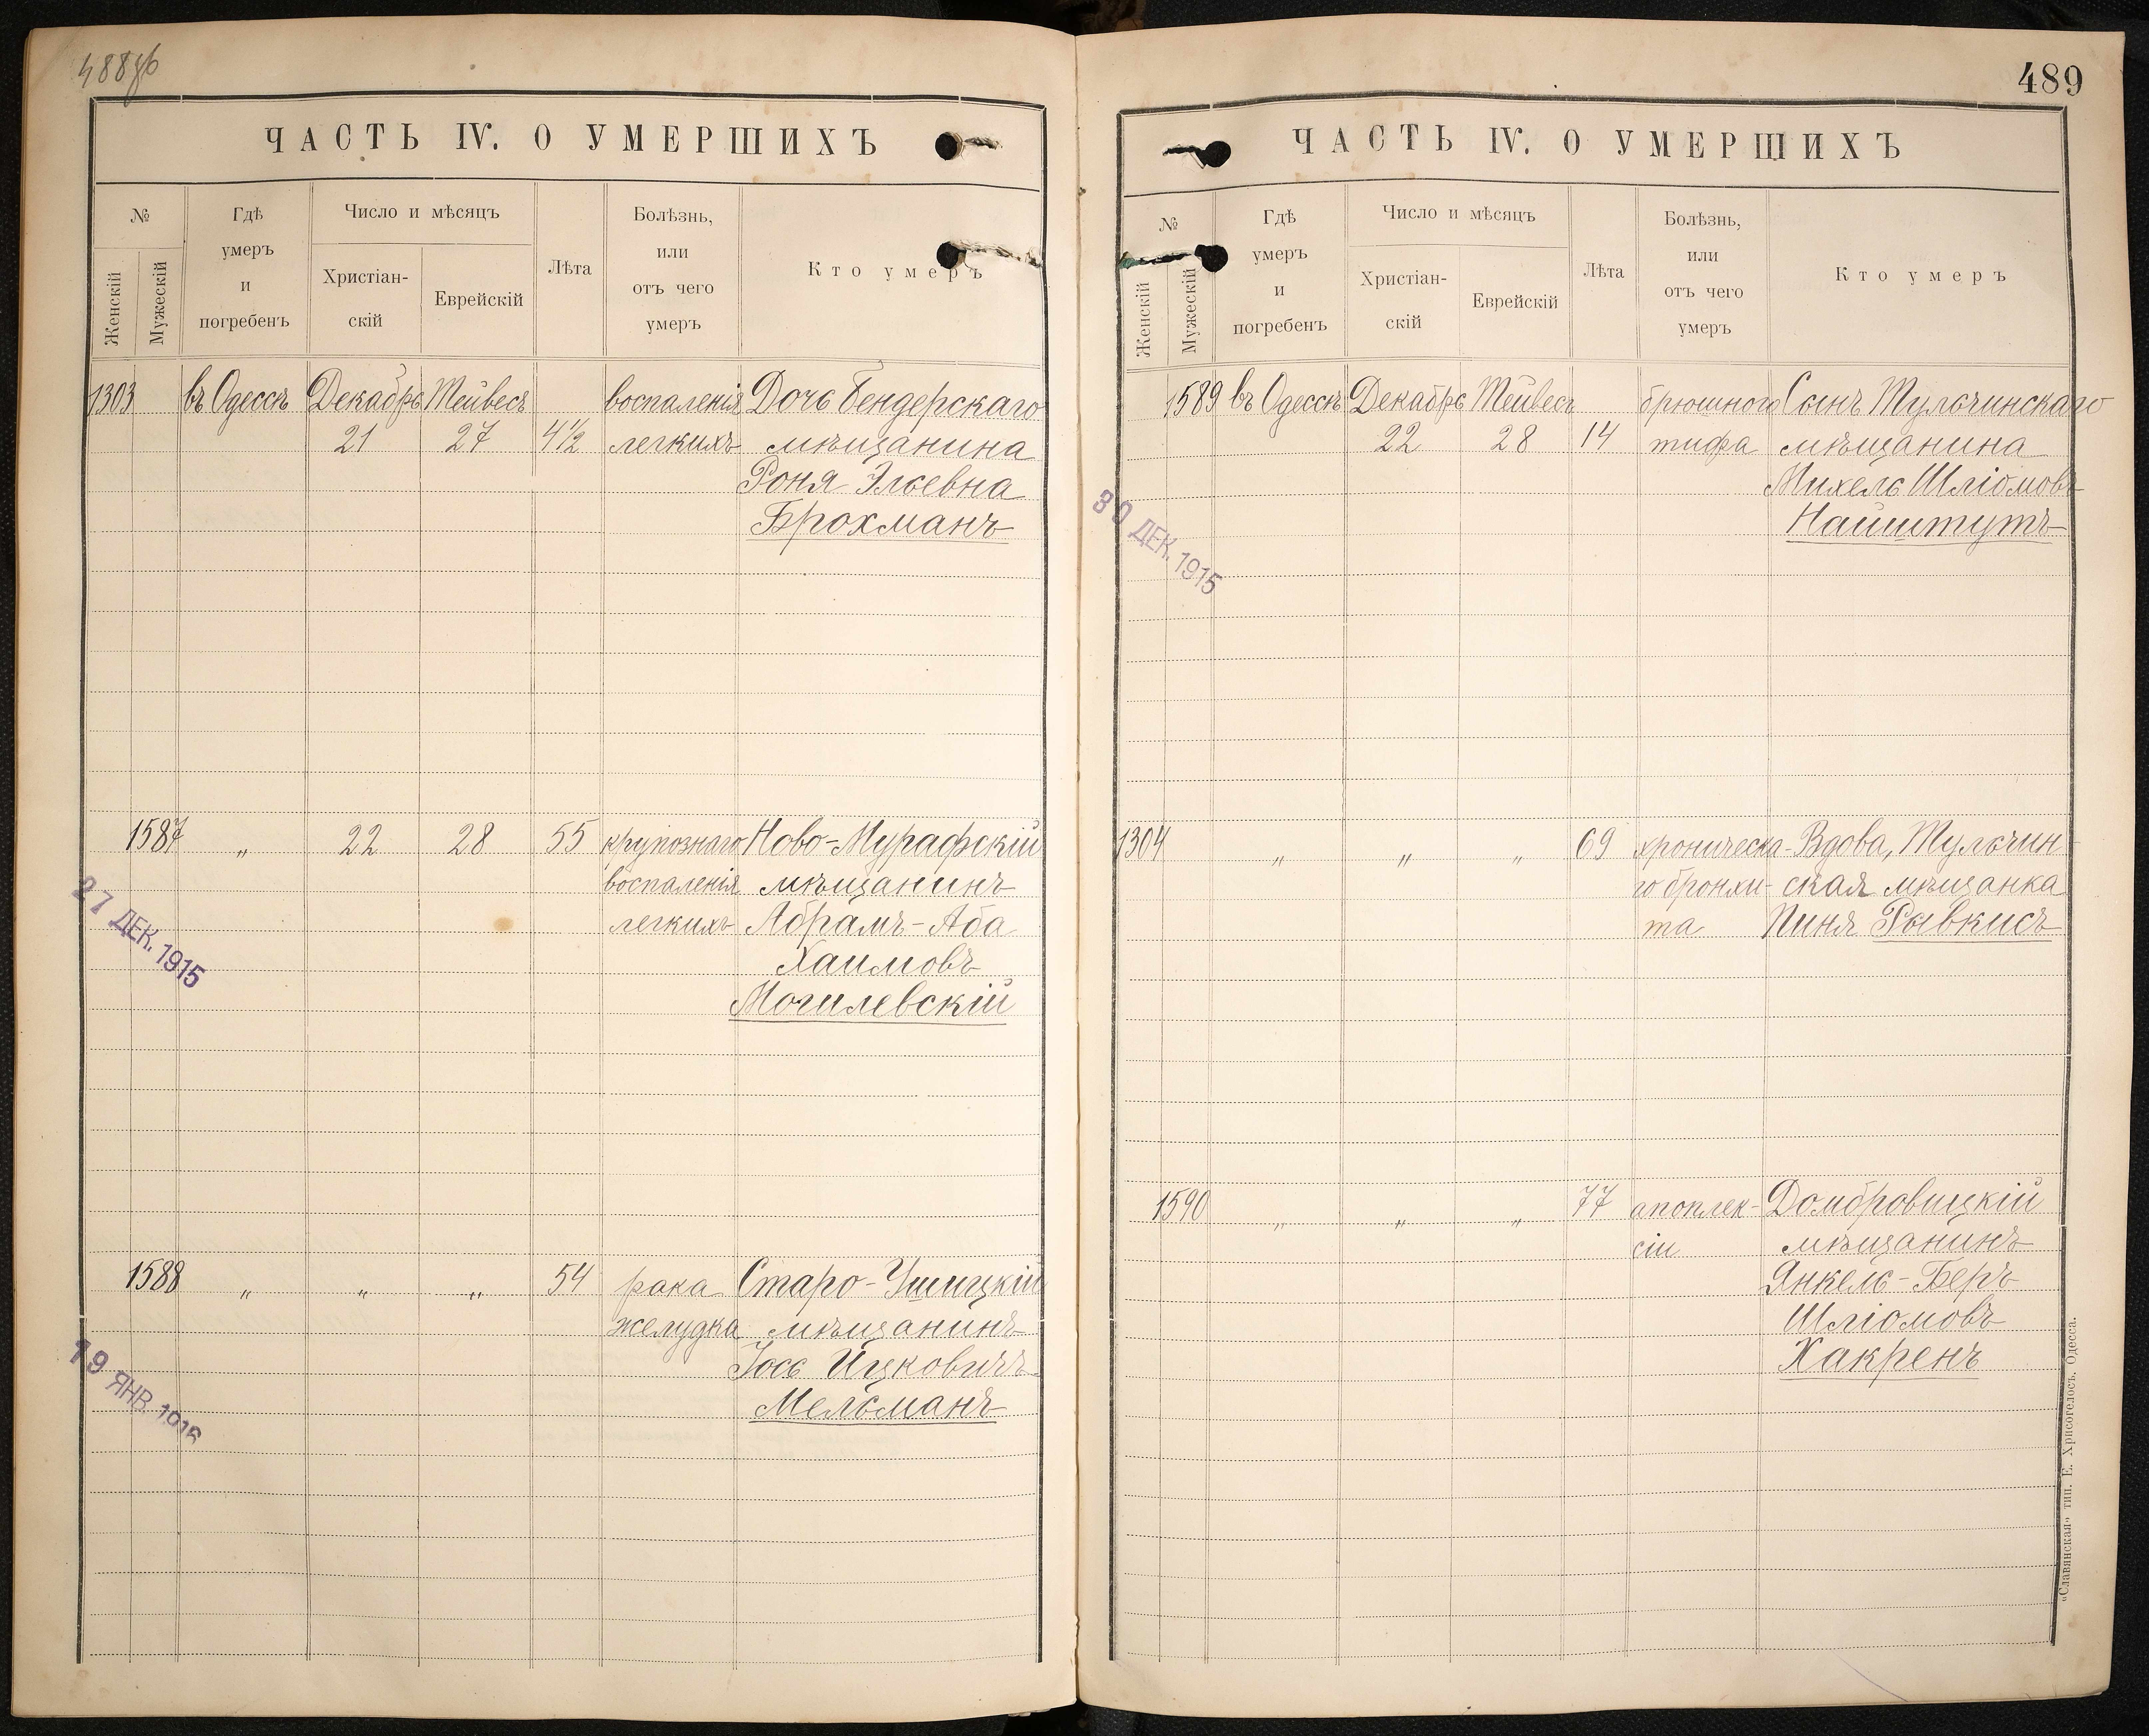 488об
ЧАСТЬ IV. О УМЕРШИХЪ
№
Женскій
Мужескій
Гдѣ
умеръ
и
погребенъ
Число и мѣсяцъ
Христіан-
скій
Еврейскій
Лѣта
Болѣзнь,
или
отъ чего
умеръ
Кто умеръ
1303 въ Одессѣ Декабрь Тейвесъ воспаленія Дочь Бендерскаго
21 27 4½ легкихъ мѣщанина
Роня Эльевна
Брохманъ
1587 „ 22 28 55 крупознаго Ново-Мурафскій
воспаленія мѣщанинъ
легкихъ Абрамъ-Аба
Хаимовъ
Могилевскій
27 ДЕК. 1915
1588 „ „ „ 54 рака Старо-Ушицкій
желудка мѣщанинъ
Іось Ицковичъ
Мельманъ
19 ЯНВ. 1916
489
ЧАСТЬ IV. О УМЕРШИХЪ
№
Женскій
Мужескій
Гдѣ
умеръ
и
погребенъ
Число и мѣсяцъ
Христіан-
скій
Еврейскій
Лѣта
Болѣзнь,
или
отъ чего
умеръ
Кто умеръ
1589 въ Одессѣ Декабрь Тейвесъ брюшного Сынъ Тульчинскаго
22 28 14 тифа мѣщанина
Михель Шліомовъ
Найштутъ
30 ДЕК. 1915
1304 „ „ „ 69 хроническа- Вдова, Тульчин-
го бронхи- ская мѣщанка
та Пиня Рывкисъ
1590 „ „ „ 77 апоплек- Домбровицкій
сіи мѣщанинъ
Янкель-Беръ
Шліомовъ
Хакренъ
„Славянская“ тип. Е. Хрисогелосъ. Одесса.